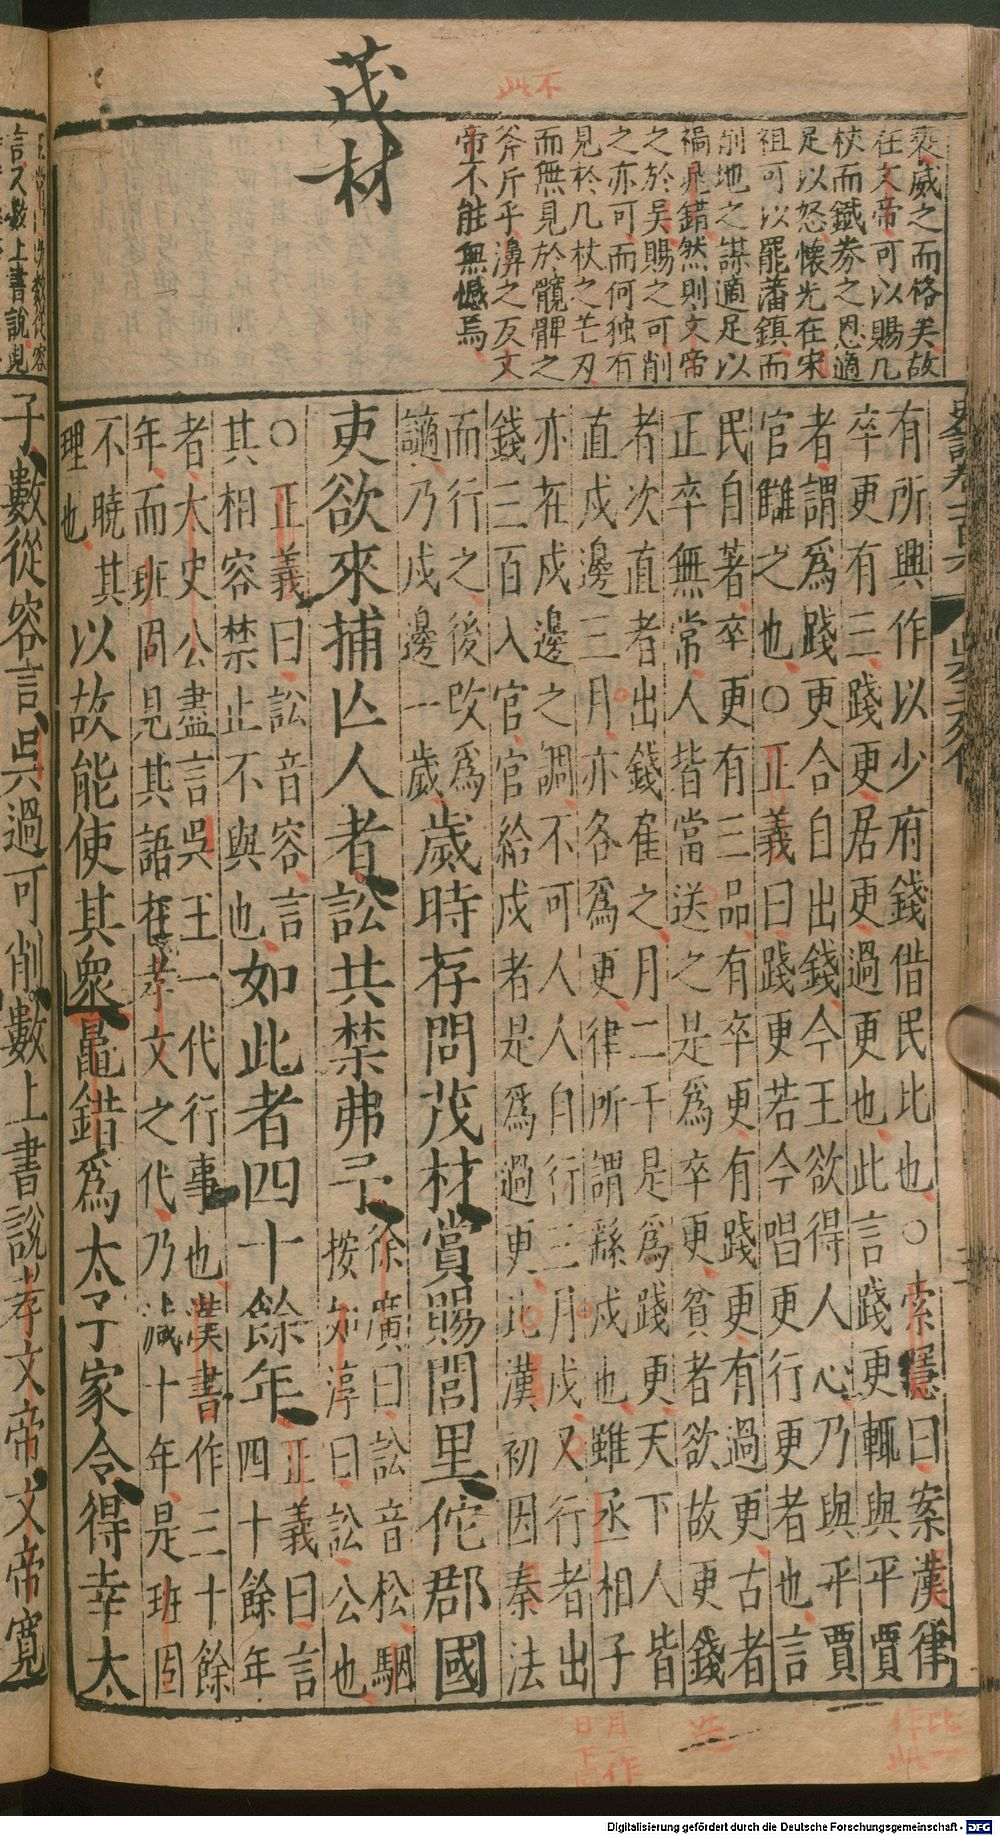 茂材
不
此
衰威之而格矣故
在文帝可以賜几
杖而鐵券之恩適
足以怒懷光在宋
祖可以罷藩鎮而
削地之謀適足以
禍晁錯然則文帝
之於吳賜之可削
之亦可而何独有
見於几杖之芒刃
而無見於髖髀之
斧斤乎濞之反文
帝不能無憾焉
有所興作以少府錢借民比也○索隱曰案漢律
卒更有三踐更居更過更也此言踐更輒與平賈
者謂爲踐更合自出錢今王欲得人心乃與平賈
官讎之也○正義曰踐更若今唱更行更者也言
民自著卒更有三品有卒更有踐更有過更古者
正卒無常人皆當送之是爲卒更貧者欲故更錢
者次直者出錢雇之月二千是爲踐更天下人皆
直戍邊三月亦各爲更律所謂繇戍也雖丞相子
亦在戍邊之調不可人人自行三月戍又行者出
錢三百入官官給戍者是爲過更此漢初因秦法
而行之後改爲
謫乃戍邊一歲
歲時存問茂材賞賜閭里佗郡國
吏欲來捕亾人者訟共禁弗予
徐廣曰訟音松駰
按如淳曰訟公也
○正義曰訟音容言
其相容禁止不與也
如此者四十餘年
正義曰言
四十餘年
者大史公盡言吳王一代行事也漢書作三十餘
年而班固見其語在孝文之代乃減十年是班固
不曉其
理也
以故能使其衆鼂錯爲太子家令得幸太
子數從容言吳過可削數上書說孝文帝文帝寬
比一
作此
送
月一作
日下同
言又數上書說
Digitalisierung gefördert durch die Deutsche Forschungsgemeinschaft - DFG